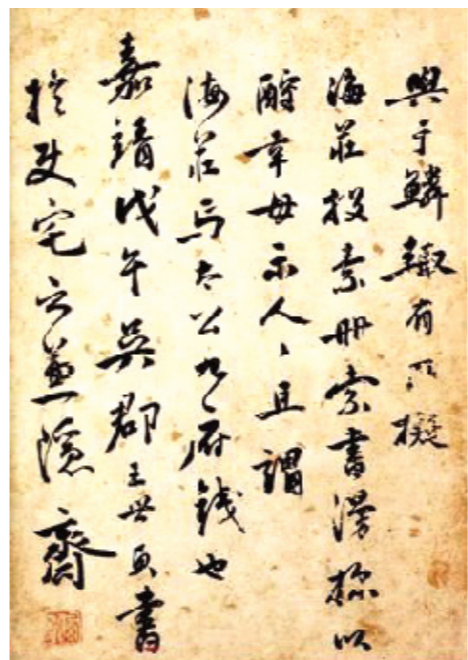 與于鱗輙有所擬
海莊投素冊索書漫掇以
酧幸毋示人人且謂
海莊馬太公九府錢也
嘉靖戊午吳郡王世貞書
於吏宅之兼隱齋